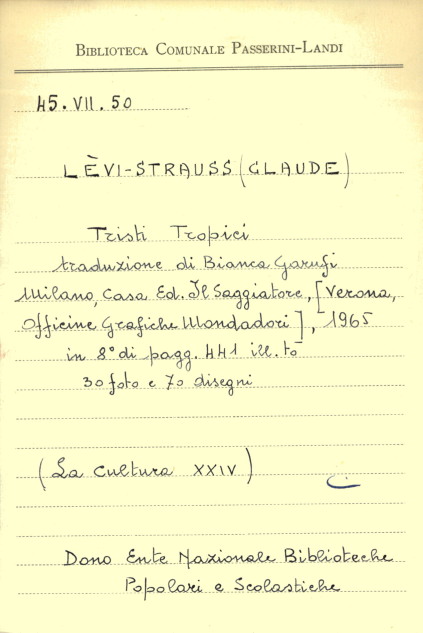 BIBLIOTECA COMUNALE PASSERINI-LANDI
45.VII.50
LÈVI-STRAUSS (CLAUDE)
Tristi Tropici
traduzione di Bianca Garufi
Milano, Casa Ed. Il Saggiatore, [Verona,
Officine Grafiche Mondadori], 1965
in 8° di pagg. 441 ill. to
30 foto e 70 disegni
(La Cultura XXIV)
Dono Ente Nazionale Biblioteche
Popolari e Scolastiche